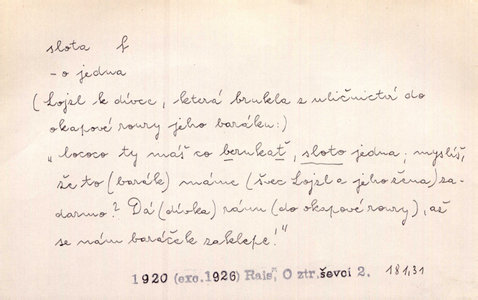 slota f
- o jedna
(Lojzl k dívce, která brukla z uličnictví do
okapové roury jeho baráku:)
„Cococo ty máš co berukať, sloto jedna; myslíš,
že to (barák) máme (švec Lojzl a jeho žena) za-
darmo? Dá (dívka) ránu (do okapové roury), až
se nám baráček zaklepe!"
1920 (exc.1926) Rais, O ztr.ševci 2. 181,31